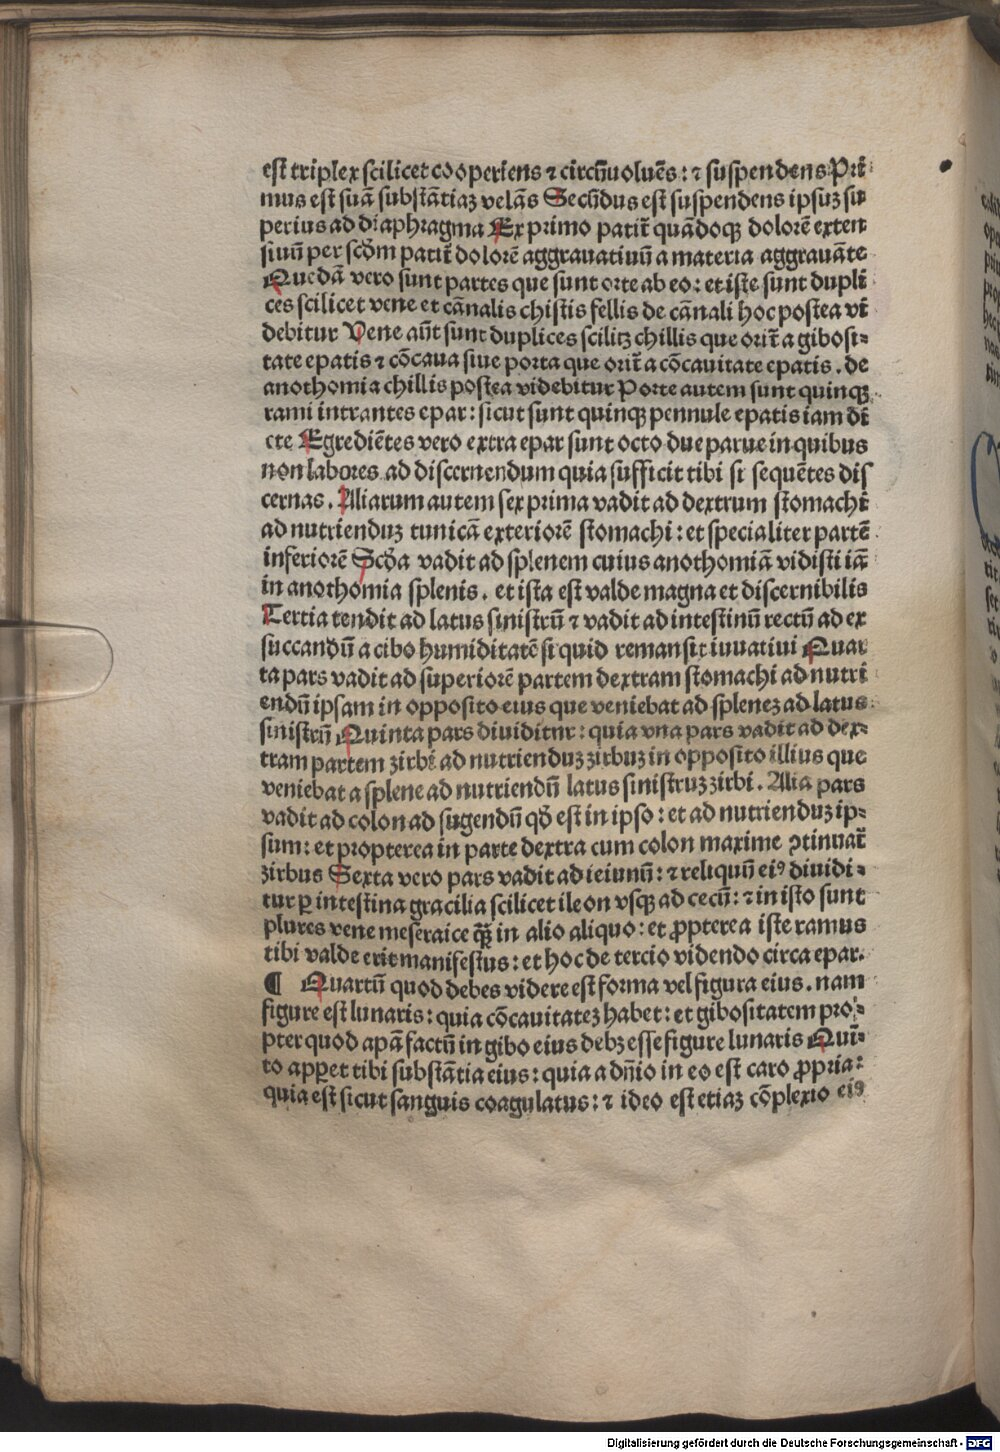 est triplex scilicet cooperiens ⁊ circũuoluẽs: ⁊ suspendens Pri
mus est suã substãtiaꝫ velãs Secũdus est suspendens ipsuꝫ su
perius ad diaphragma Ex primo patit̃ quãdoqꝫ dolorẽ exten
siuũ per scðm patit̃ dolorẽ aggrauatiuũ a materia aggrauãte
Quedã vero sunt partes que sunt orte ab eo: et iste sunt dupli
ces scilicet vene et cãnalis chistis fellis de cãnali hoc postea vi
debitur Vene aũt sunt duplices scilitꝫ chillis que orit̃ a gibosi-
tate epatis ⁊ cõcaua siue porta que orit̃ a cõcauitate epatis. de
anothomia chillis postea videbitur Porte autem sunt quinqꝫ
rami intrantes epar: sicut sunt quinqꝫ pennule epatis iam di
cte Egrediẽtes vero extra epar sunt octo due parue in quibus
non labores ad discernendum quia sufficit tibi si sequẽtes dis
cernas. Aliarum autem sex prima vadit ad dextrum stomachi
ad nutrienduꝫ tunicã exteriorẽ stomachi: et specialiter partẽ
inferiorẽ Scðа vadit ad splenem cuius anothomiã vidisti iã
in anothomia splenis. et ista est valde magna et discernibilis
Tertia tendit ad latus sinistrũ ⁊ vadit ad intestinũ rectũ ad ex
succandũ a cibo humiditatẽ si quid remansit iuuatiui Quar
ta pars vadit ad superiorẽ partem dextram stomachi ad nutri
endũ ipsam in opposito eius que veniebat ad spleneꝫ ad latus
sinistrũ Quinta pars diuiditur: quia vna pars vadit ad dex-
tram partem zirbi ad nutrienduꝫ zirbuꝫ in opposito illius que
veniebat a splene ad nutriendũ latus sinistruꝫ zirbi. Alia pars
vadit ad colon ad sugendũ qð est in ipso: et ad nutrienduꝫ ip-
sum: et propterea in parte dextra cum colon maxime ꝯtinuat̃
zirbus Sexta vero pars vadit ad ieiunũ: ⁊ reliquũ eiꝰ diuidi-
tur ꝑ intestina gracilia scilicet ileon vsqꝫ ad cecũ: ⁊ in isto sunt
plures vene meseraice qꝫ̃ in alio aliquo: et ꝓpterea iste ramus
tibi valde erit manifestus: et hoc de tercio videndo circa epar.
¶ Quartũ quod debes videre est forma vel figura eius. nam
figure est lunaris: quia cõcauitateꝫ habet: et gibositatem pro-
pter quod apã factũ in gibo eius debꝫ esse figure lunaris Quĩ-
to apꝑet tibi substãtia eius: quia a dñio in eo est caro ꝓpria:
quia est sicut sanguis coagulatus: ⁊ ideo est etiaꝫ cõplexio eiꝰ
Digitalisierung gefördert durch die Deutsche Forschungsgemeinschaft - DFG